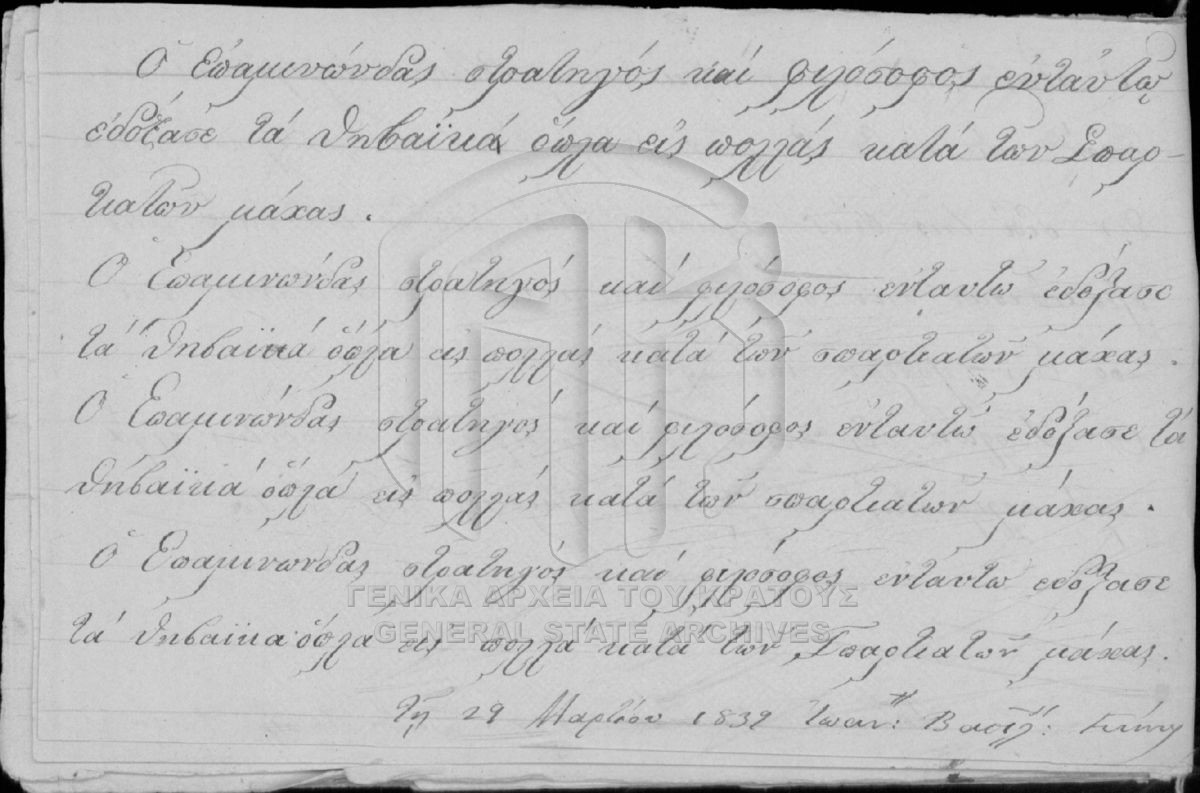 Ὁ Ἐπαμινώνδας στρατηγός καί φιλόσοφος ἐνταὐτῷ
ἐδόξασε τά Θηβαϊκά ὅπλα εἰς πολλάς κατά τῶν Σπαρ-
τιατῶν μάχας.
Ὁ Ἐπαμινώνδας στρατηγός καί φιλόσοφος ἐνταυτῶ ἐδόξασε
τά Θηβαϊκά ὅπλα εις πολλάς κατά τῶν σπαρτιατῶν μάχας.
Ὁ Ἐπαμινώνδας στρατηγός καί φιλόσοφος ἐνταυτῶ ἐδόξασε τά
Θηβαϊκά ὅπλα εἰς πολλάς κατά τῶν σπαρτιατῶν μάχας.
Ὁ Επαμινωνδας στρατηγός καί φιλόσοφος ενταυτω εδόξασε
ΓΕΝΙΚΑ ΑΡΧΕΙΑ ΤΟΥ ΚΡΑΤΟΥΣ
τά Θηβαϊκα ὅπλα εις πολλά κατά των Σπαρτιατῶν μάχας.
GENERAL STATE ARCHIVES
Τῇ 29 Μαρτίου 1839 Ἰωαν: Βασιλ: